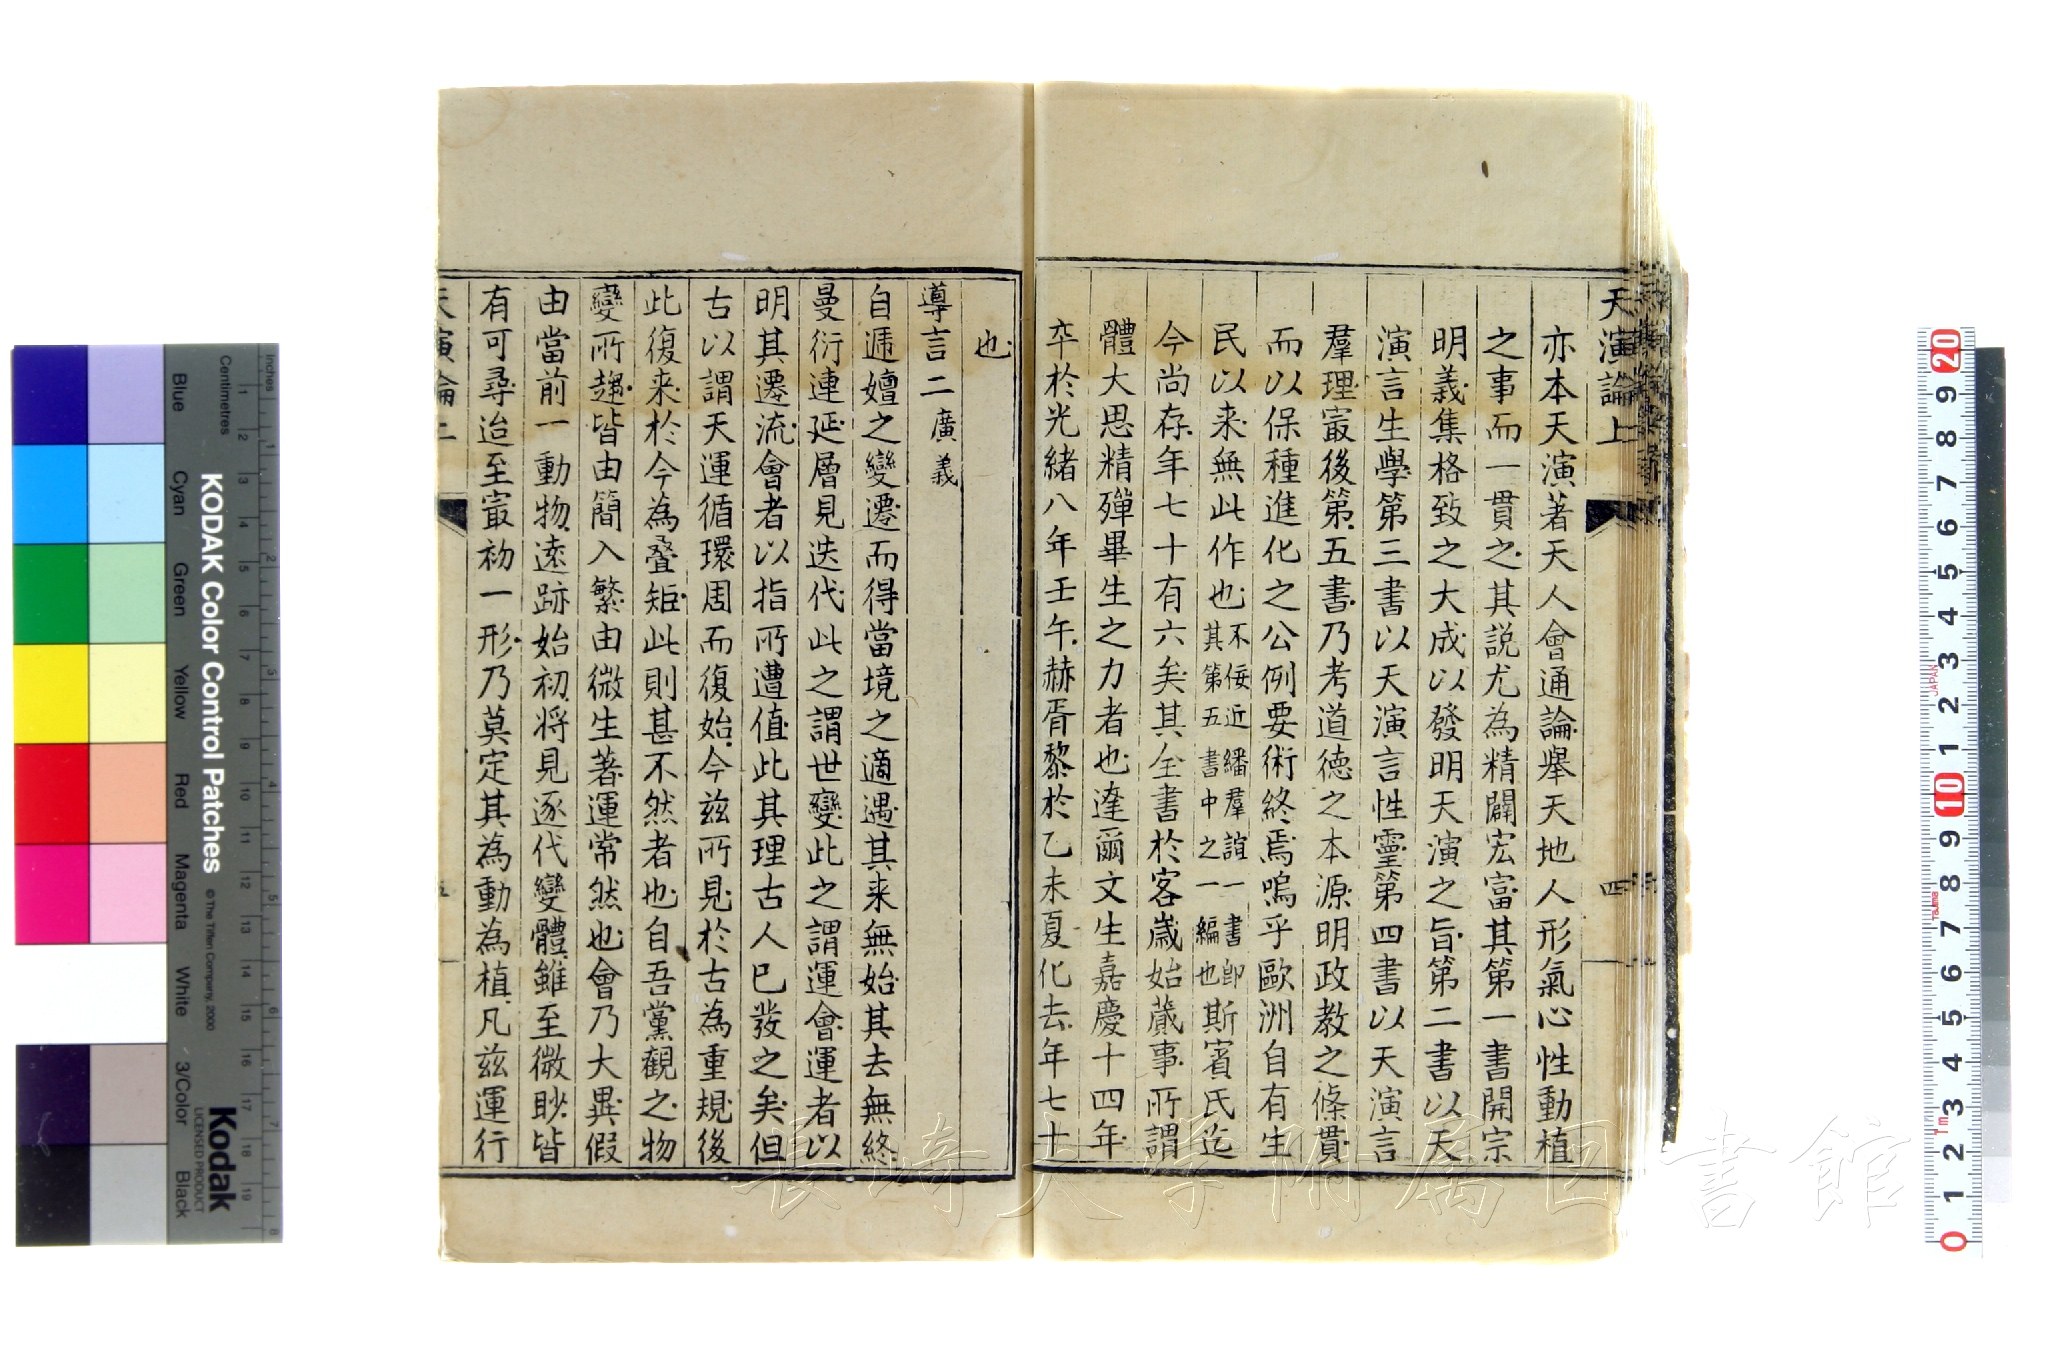 天演論上
四
亦本天演著天人會通論舉天地人形氣心性動植
之事而一貫之其說尤為精闢宏富其第一書開宗
明義集格致之大成以發明天演之旨第二書以天
演言生學第三書以天演言性靈第四書以天演言
羣理冣後第五書乃考道德之本源明政教之條貫
而以保種進化之公例要術終焉嗚乎歐洲自有生
民以来無此作也不佞近繙羣誼一書即其第五書中之一編也斯賓氏迄
今尚存年七十有六矣其全書於客歳始蕆事所謂
體大思精殫畢生之力者也達爾文生嘉慶十四年
卒於光緒八年壬午赫胥黎於乙未夏化去年七十
也
導言二廣義
自遞嬗之變遷而得當境之適遇其来無始其去無終
曼衍連延層見迭代此之謂世變此之謂運會運者以
明其遷流會者以指所遭值此其理古人已發之矣但
古以謂天運循環周而復始今兹所見於古為重規後
此復来於今為疊矩此則甚不然者也自吾黨觀之物
變所趨皆由簡入繁由微生著運常然也會乃大異假
由當前一動物遠跡始初将見逐代變體雖至微眇皆
有可尋迨至冣初一形乃莫定其為動為植凡兹運行
天演論上
KODAK Color Control Patches
© The Tiffen Company, 2000
Kodak
LICENSED PRODUCT
Inches
Centimetres
Blue
Cyan
Green
Yellow
Red
Magenta
White
3/Color
Black
1 2 3 4 5 6 7 8
1 2 3 4 5 6 7 8 9 10 11 12 13 14 15 16 17 18 19
20 9 8 7 6 5 4 3 2 1 10 9 8 7 6 5 4 3 2 1 0
JAPAN
Tajima
長崎大学附属図書館